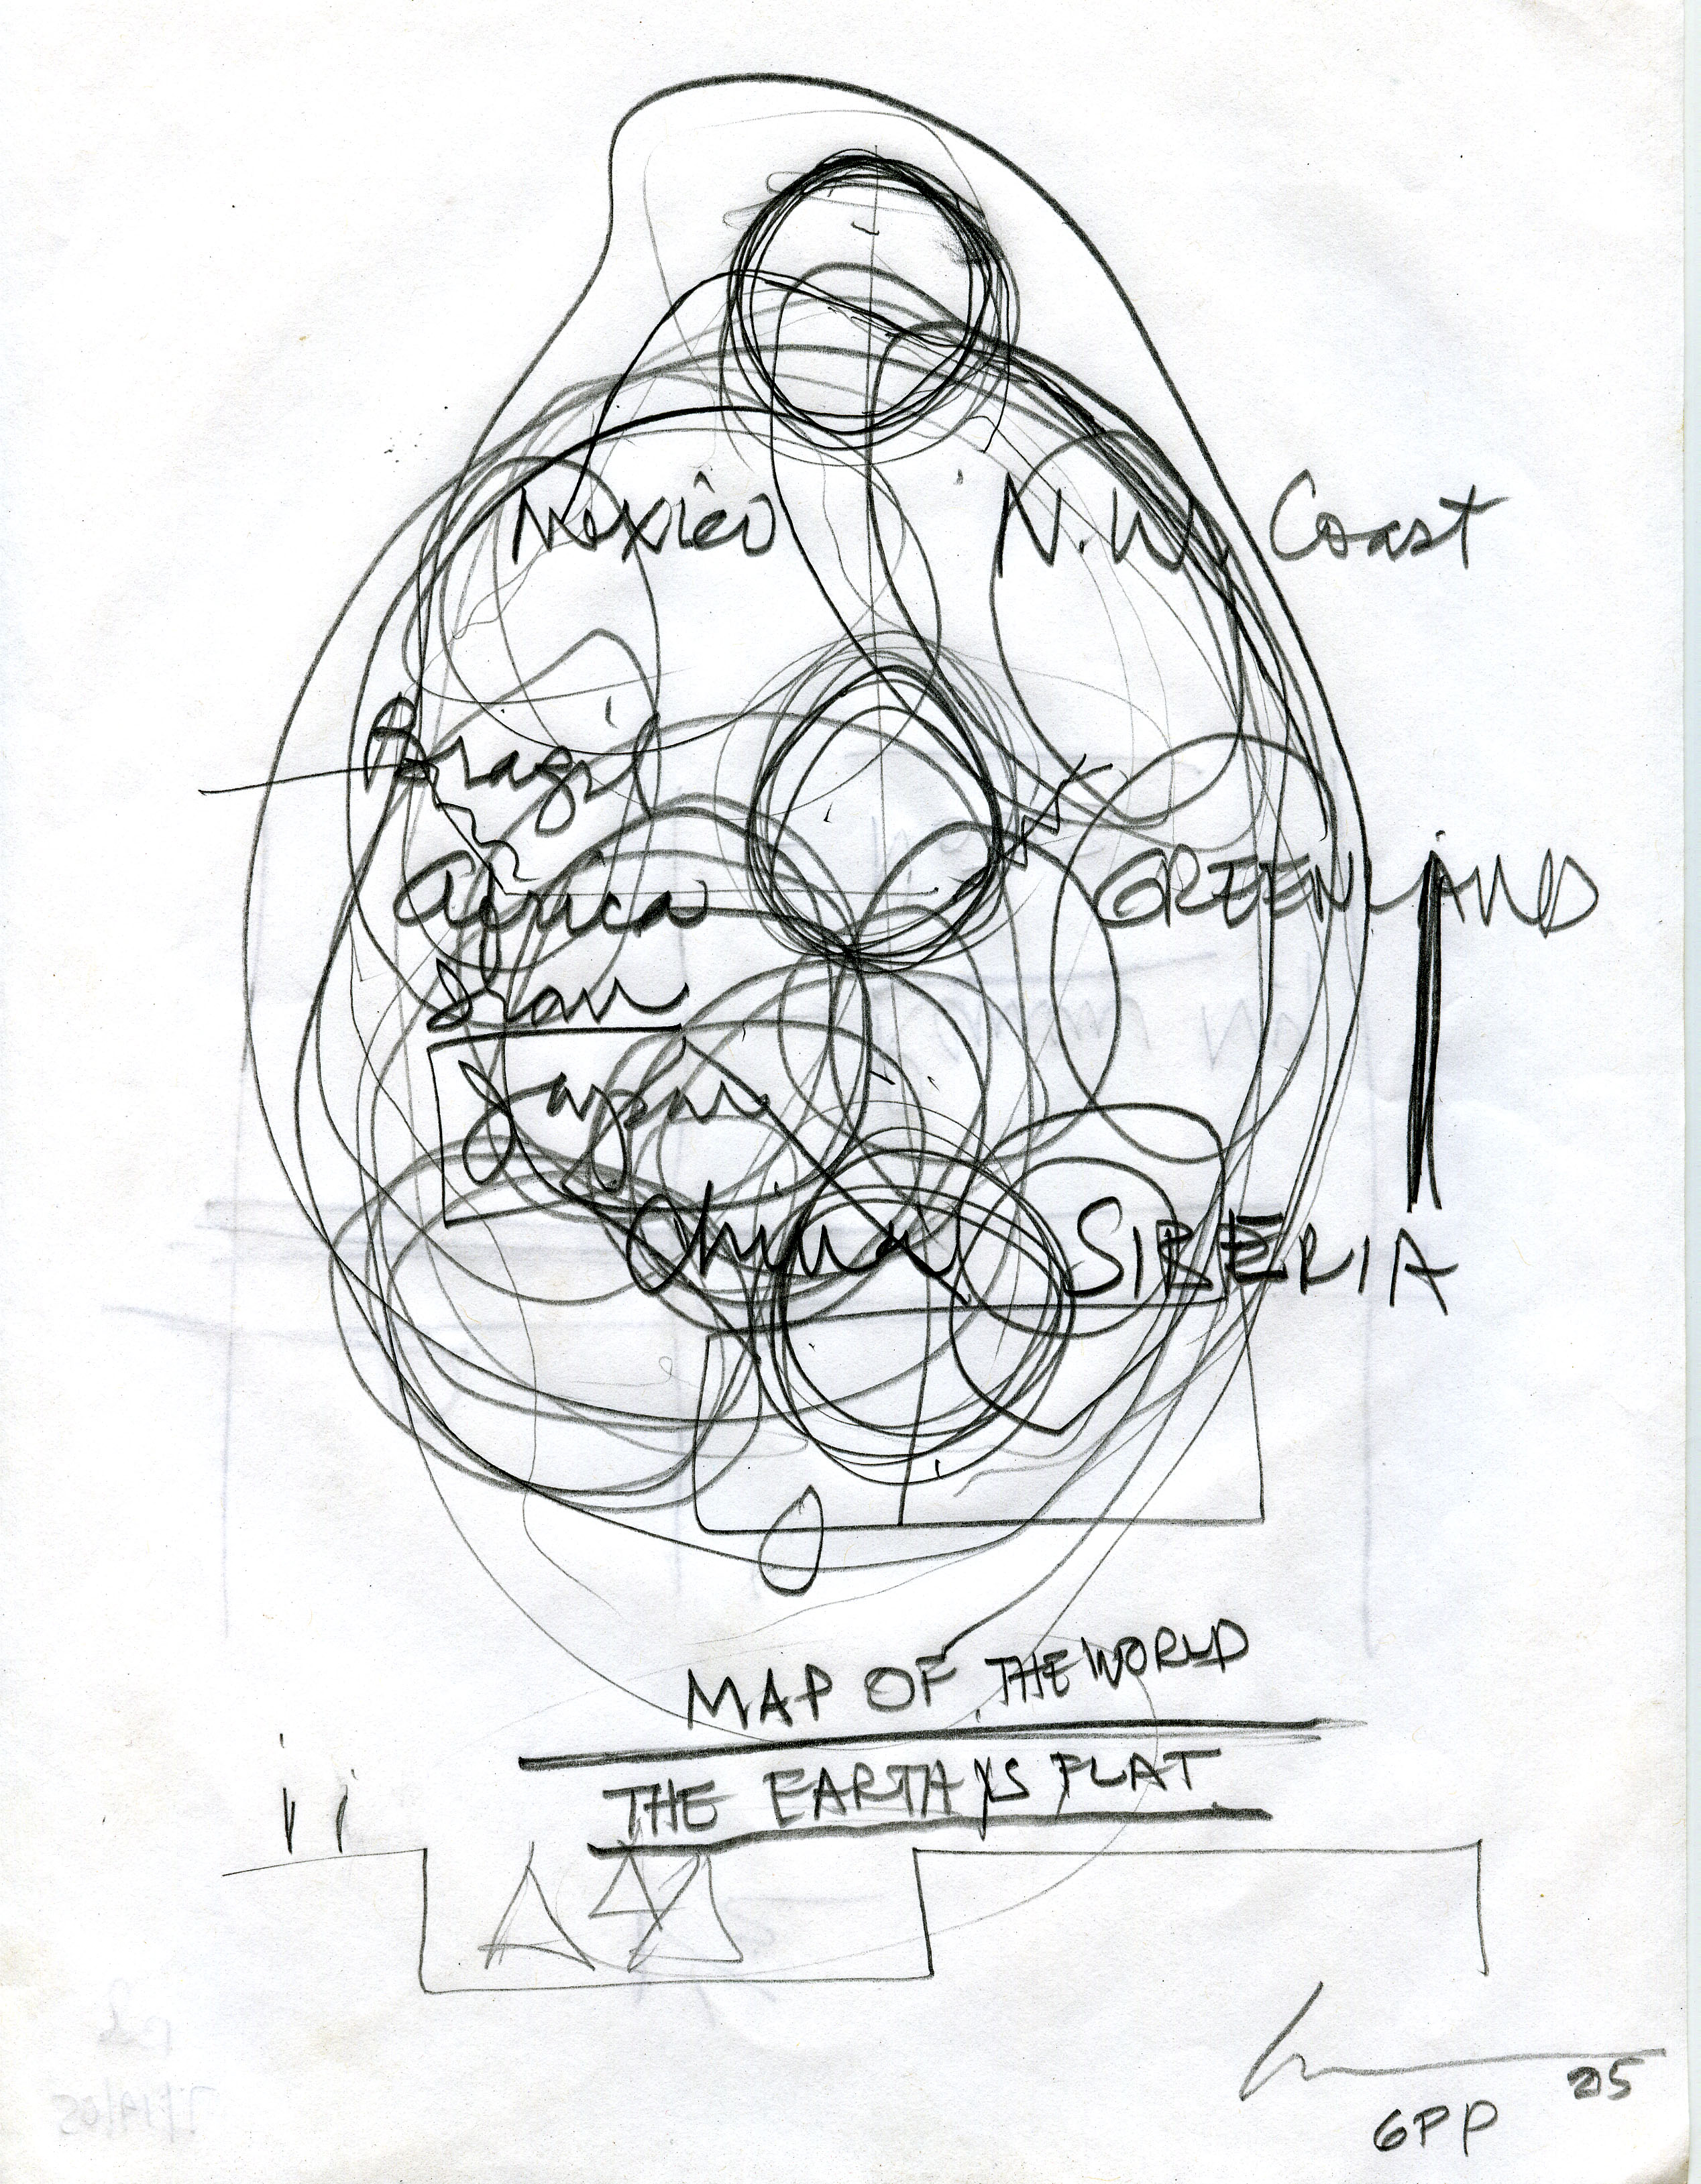 Mexico N.W. Coast
Brazil
Africa GREENLAND
Iran
Japan
China SIBERIA
MAP OF THE WORLD
THE EARTH IS FLAT
05
6PP